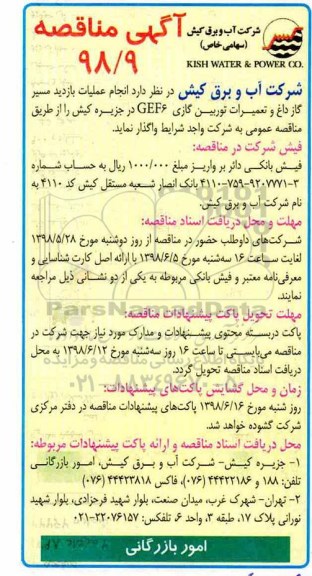 شرکت آب و برق کیش
(سهامی خاص)
KISH WATER & POWER CO.
آگهی مناقصه
۹۸/۹
شرکت آب و برق کیش در نظر دارد انجام عملیات بازدید مسیر
گاز داغ و تعمیرات توربین گازی GEF۶ در جزیره کیش را از طریق
مناقصه عمومی به شرکت واجد شرایط واگذار نماید.
فیش شرکت در مناقصه:
فیش بانکی دائر بر واریز مبلغ ۱/۰۰۰/۰۰۰ ریال به حساب شماره
۳-۹۲۰۷۷۷۱-۷۵۹-۴۱۱۰ بانک انصار شعبه مستقل کیش کد ۴۱۱۰ به
نام شرکت آب و برق کیش.
مهلت و محل دریافت اسناد مناقصه:
شرکت‌های داوطلب حضور در مناقصه از روز دوشنبه مورخ ۱۳۹۸/۵/۲۸
لغایت ساعت ۱۶ سه‌شنبه مورخ ۱۳۹۸/۶/۵ با ارائه اصل کارت شناسایی و
معرفی‌نامه معتبر و فیش بانکی مربوطه به یکی از دو نشانی ذیل مراجعه
نمایند.
مهلت تحویل پاکت پیشنهادات مناقصه:
پاکت دربسته محتوی پیشنهادات و مدارک مورد نیاز جهت شرکت در
مناقصه می‌بایستی تا ساعت ۱۶ روز سه‌شنبه مورخ ۱۳۹۸/۶/۱۲ به محل
دریافت اسناد مناقصه تحویل گردد.
زمان و محل گشایش پاکت‌های پیشنهادات:
روز شنبه مورخ ۱۳۹۸/۶/۱۶ پاکت‌های پیشنهادات مناقصه در دفتر مرکزی
شرکت گشوده خواهد شد.
محل دریافت اسناد مناقصه و ارائه پاکت پیشنهادات مربوطه:
۱- جزیره کیش- شرکت آب و برق کیش، امور بازرگانی
تلفن: ۱۸۸ و ۴۴۴۲۲۱۸۶ (۰۷۶)، فاکس ۴۴۴۲۳۸۱۸ (۰۷۶)
۲- تهران- شهرک غرب، میدان صنعت، بلوار شهید فرحزادی، بلوار شهید
نورانی پلاک ۱۷، طبقه ۳، واحد ۶، تلفکس: ۲۲۰۷۶۱۵۷-۰۲۱
امور بازرگانی